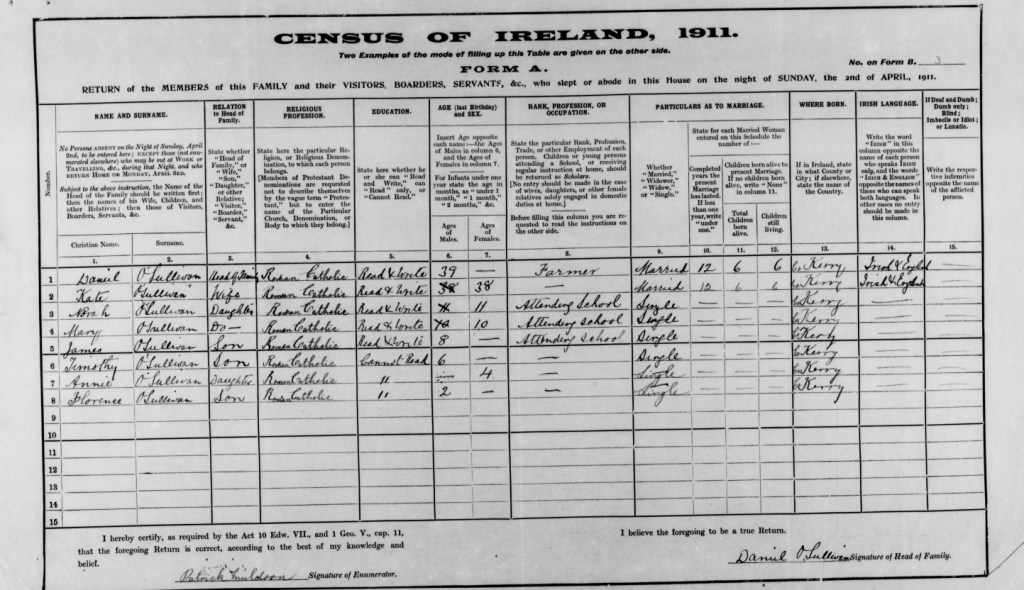 CENSUS OF IRELAND, 1911.
Two Examples of the mode of filling up this Table are given on the other side.
FORM A.
No. on Form B. 3
RETURN of the MEMBERS of this FAMILY and their VISITORS, BOARDERS, SERVANTS, &c., who slept or abode in this House on the night of SUNDAY, the 2nd of APRIL, 1911.
Number.
NAME AND SURNAME.
No Persons ABSENT on the Night of Sunday, April 2nd, to be entered here; EXCEPT those (not enumerated elsewhere) who may be out at WORK or TRAVELLING, &c., during that Night, and who RETURN HOME ON MONDAY, APRIL 3RD.
Subject to the above instruction, the Name of the Head of the Family should be written first; then the names of his Wife, Children, and other Relatives; then those of Visitors, Boarders, Servants, &c.
Christian Name. Surname.
RELATION to Head of Family.
State whether "Head of Family," or "Wife," "Son," "Daughter," or other Relative; "Visitor," "Boarder," "Servant," &c.
RELIGIOUS PROFESSION.
State here the particular Religion, or Religious Denomination, to which each person belongs.
[Members of Protestant Denominations are requested not to describe themselves by the vague term "Protestant," but to enter the name of the Particular Church, Denomination, or Body to which they belong.]
EDUCATION.
State here whether he or she can "Read and Write," can "Read" only, or "Cannot Read."
AGE (last Birthday) and SEX.
Insert Age opposite each name:—the Ages of Males in column 6, and the Ages of Females in column 7.
For Infants under one year state the age in months, as "under 1 month," "1 month," "2 months," &c.
Ages of Males. Ages of Females.
RANK, PROFESSION, OR OCCUPATION.
State the particular Rank, Profession, Trade, or other Employment of each person. Children or young persons attending a School, or receiving regular instruction at home, should be returned as Scholars.
[No entry should be made in the case of wives, daughters, or other female relatives solely engaged in domestic duties at home.]
Before filling this column you are requested to read the instructions on the other side.
PARTICULARS AS TO MARRIAGE.
Whether "Married," "Widower," "Widow," or "Single."
State for each Married Woman entered on this Schedule the number of:—
Completed years the present Marriage has lasted. If less than one year, write "under one."
Children born alive to present Marriage. If no children born alive, write "None" in column 11.
Total Children born alive. Children still living.
WHERE BORN.
If in Ireland, state in what County or City; if elsewhere, state the name of the Country.
IRISH LANGUAGE.
Write the word "IRISH" in this column opposite the name of each person who speaks IRISH only, and the words "IRISH & ENGLISH" opposite the names of those who can speak both languages. In other cases no entry should be made in this column.
If Deaf and Dumb; Dumb only; Blind; Imbecile or Idiot; or Lunatic.
Write the respective infirmities opposite the name of the afflicted person.
1. 2. 3. 4. 5. 6. 7. 8. 9. 10. 11. 12. 13. 14. 15.
1 Daniel O'Sullivan Head of Family Roman Catholic Read & Write 39 — Farmer Married 12 6 6 Co Kerry Irish & English
2 Kate O'Sullivan Wife Roman Catholic Read & Write 38 38 — Married 12 6 6 Co Kerry Irish & English
3 Norah O'Sullivan Daughter Roman Catholic Read & Write 11 11 Attending School Single — — — Co Kerry — —
4 Mary O'Sullivan Do — Roman Catholic Read & Write 10 10 Attending School Single — — — Co Kerry — —
5 James O'Sullivan Son Roman Catholic Read & Write 8 — Attending School Single — — — Co Kerry — —
6 Timothy O'Sullivan Son Roman Catholic Cannot Read 6 — — Single — — — Co Kerry — —
7 Annie O'Sullivan Daughter Roman Catholic " — 4 — Single — — — Co Kerry — —
8 Florence O'Sullivan Son Roman Catholic " 2 — — Single — — — Co Kerry — —
9
10
11
12
13
14
15
I hereby certify, as required by the Act 10 Edw. VII., and 1 Geo. V., cap. 11,
that the foregoing Return is correct, according to the best of my knowledge and
belief.
Patrick Signature of Enumerator.
I believe the foregoing to be a true Return.
Daniel O'Sullivan Signature of Head of Family.